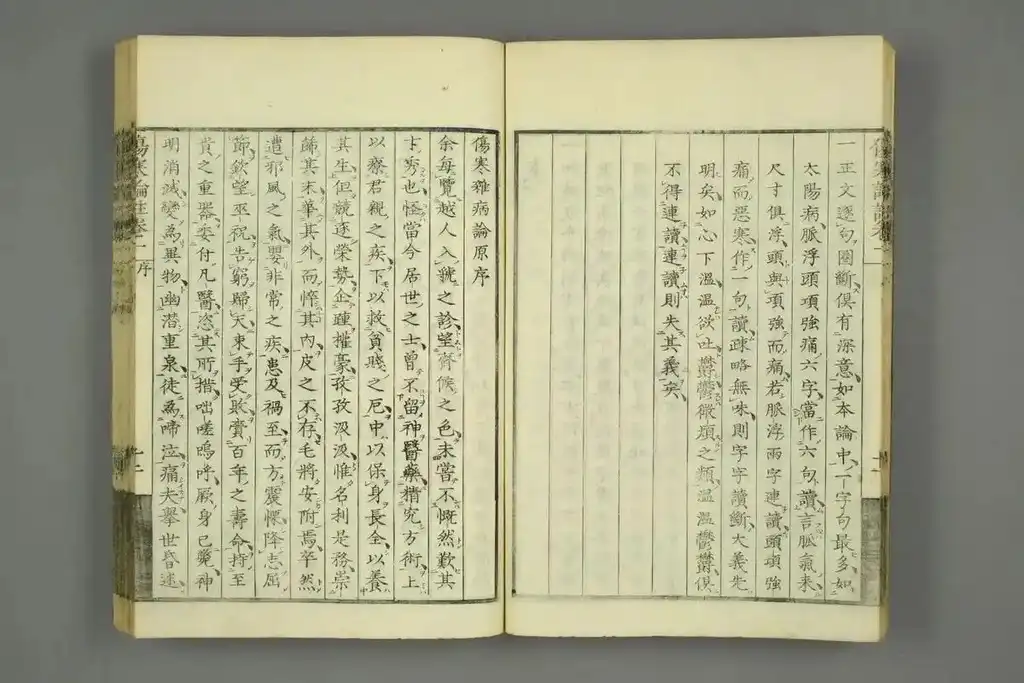 一正文逐句圈斷俱有深意如本論中一字句最多如
太陽病脈浮頭項強痛六字當作六句讀言脈氣來
尺寸俱浮頭與項強而痛若脈浮兩字連讀頭項強
痛而惡寒作一句讀疎略無味則字字讀斷大義先
明矣如心下溫溫欲吐鬱鬱微煩之類溫溫鬱鬱俱
不得連讀連讀則失其義矣
傷寒雜病論原序
余每覽越人入虢之診望齊候之色未嘗不慨然歎其
才秀也怪當今居世之士曾不留神醫藥精究方術上
以療君親之疾下以救貧賤之厄中以保身長全以養
其生但競逐榮勢企踵權豪孜孜汲汲惟名利是務崇
飾其末華其外而悴其內皮之不存毛將安附焉卒然
遭邪風之氣嬰非常之疾患及禍至而方震慄降志屈
節欽望巫祝告窮歸天束手受敗賷百年之壽命持至
貴之重器委付凡醫恣其所措咄嗟嗚呼厥身已斃神
明消滅變為異物幽潛重泉徒為啼泣痛夫舉世昏迷
傷寒論註卷一
序